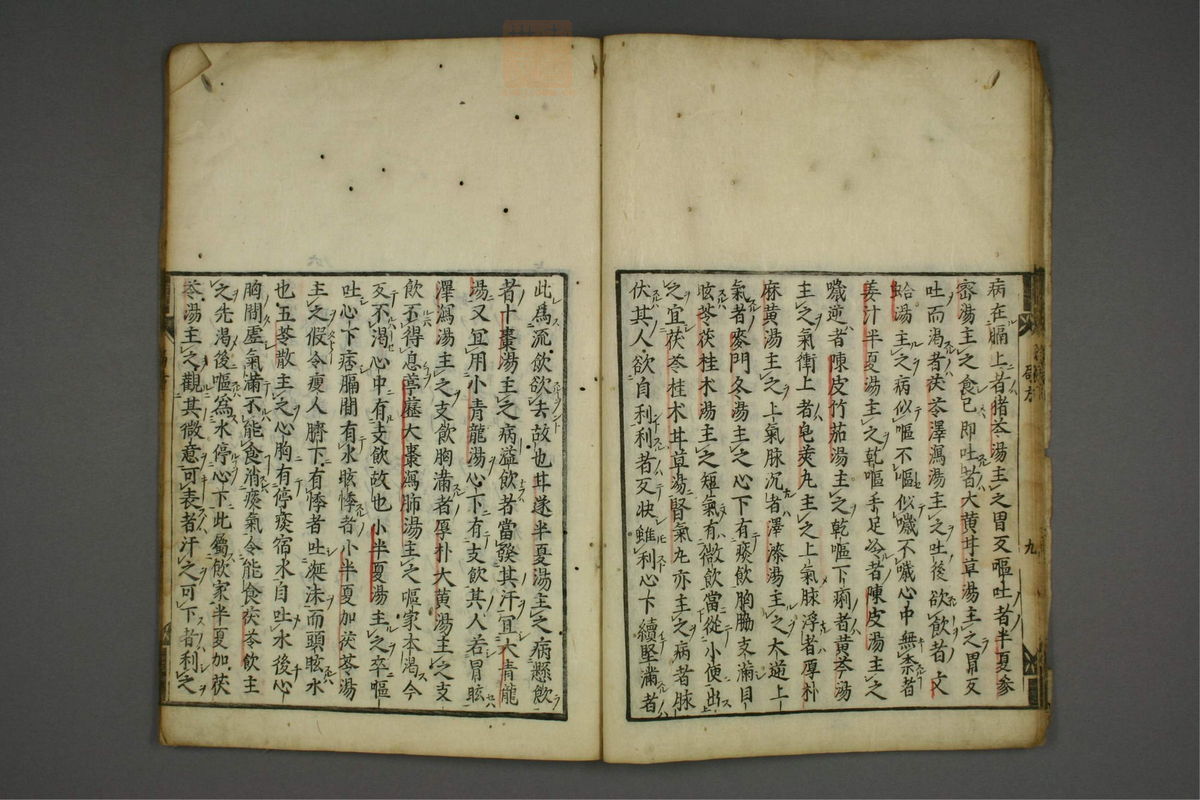 病在膈上者猪苓湯主之胃反嘔吐者半夏參
蜜湯主之食已即吐者大黄甘草湯主之胃反
吐而渴者茯苓澤瀉湯主之吐後欲飲者文
蛤湯主之病似嘔不嘔似噦不噦心中無柰者
姜汁半夏湯主之乾嘔手足冷者陳皮湯主之
噦逆者陳皮竹茹湯主之乾嘔下痢者黄芩湯
主之氣衝上者皂莢丸主之上氣脉浮者厚朴
麻黄湯主之上氣脉沉者澤漆湯主之大逆上
氣者麥門冬湯主之心下有痰飲胸脇支滿目
眩苓茯桂术湯主之短氣有微飲當從小便出
之宜茯苓桂术甘草湯腎氣丸亦主之病者脉
伏其人欲自利利者反快雖利心下續堅滿者
九
此爲流飲欲去故也甘遂半夏湯主之病懸飲
者十棗湯主之病溢飲者當發其汗宜大青龍
湯又宜用小青龍湯心下有支飲其人若冒眩
澤瀉湯主之支飲胸滿者厚朴大黄湯主之支
飲不得息葶藶大棗瀉肺湯主之嘔家本渴今
反不渴心中有支飲故也小半夏湯主之卒嘔
吐心下痞膈間有水眩悸者小半夏加茯苓湯
主之假令瘦人臍下有悸者吐涎沫而頭眩水
也五苓散主之心胸有停痰宿水自吐水後心
胸間虛氣滿不能食消痰氣令能食茯苓飲主
之先渴後嘔爲水停心下此屬飲家半夏加茯
苓湯主之觀其微意可表者汗之可下者利之